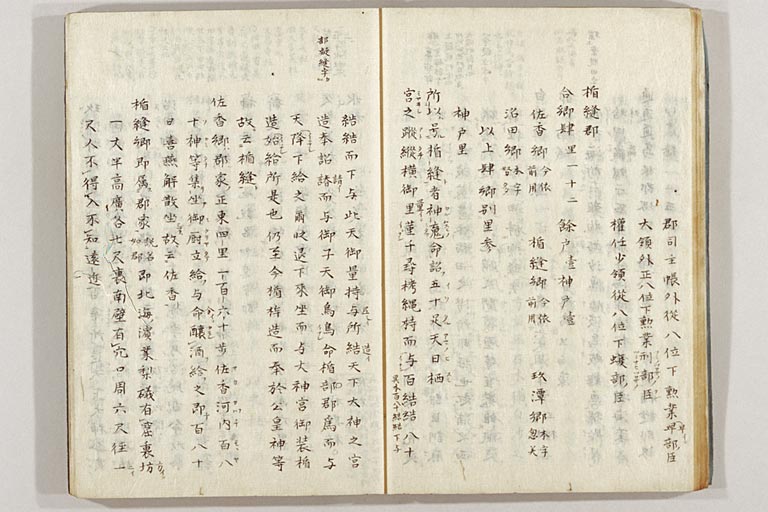 郡司主帳外従八位下勲業早部臣
大領外正八位下勲業刑部臣
權任少領従八位下蝮部臣
楯縫郡
合郷肆里一十二 餘戸壹 神戸壹
佐香郷 今依前用 楯縫郷 今依前用 玖潭郷 本字忽美
沼田郷 本字努多
以上肆郷別里参
神戸里
所以号楯縫者神魂命詔五十足天日栖
宮之蹤縱横御里薫千尋栲縄持而与百結結八十
異本百八十結結下与
結結而下与此天御量持与所結天下大神之宮
造奉詔詣而与御子天御鳥鳥命楯部郡為而与
天降下給之爾時退下来坐而与大神宮御装楯
造始給所是也仍至今楯桙造而奉於公皇神等
故云楯縫
部疑縫字
佐香郷郡家正東四里一百六十歩佐香河内百八
十神等集坐御厨立給与命釀酒給之即百八十
日喜燕解散坐故云佐香
楯縫郷即属郡家即北海濱業梨磯有窟裏坊
一丈半高廣各七尺裏南壁有穴口周六尺径一
尺人不得入不知遠近